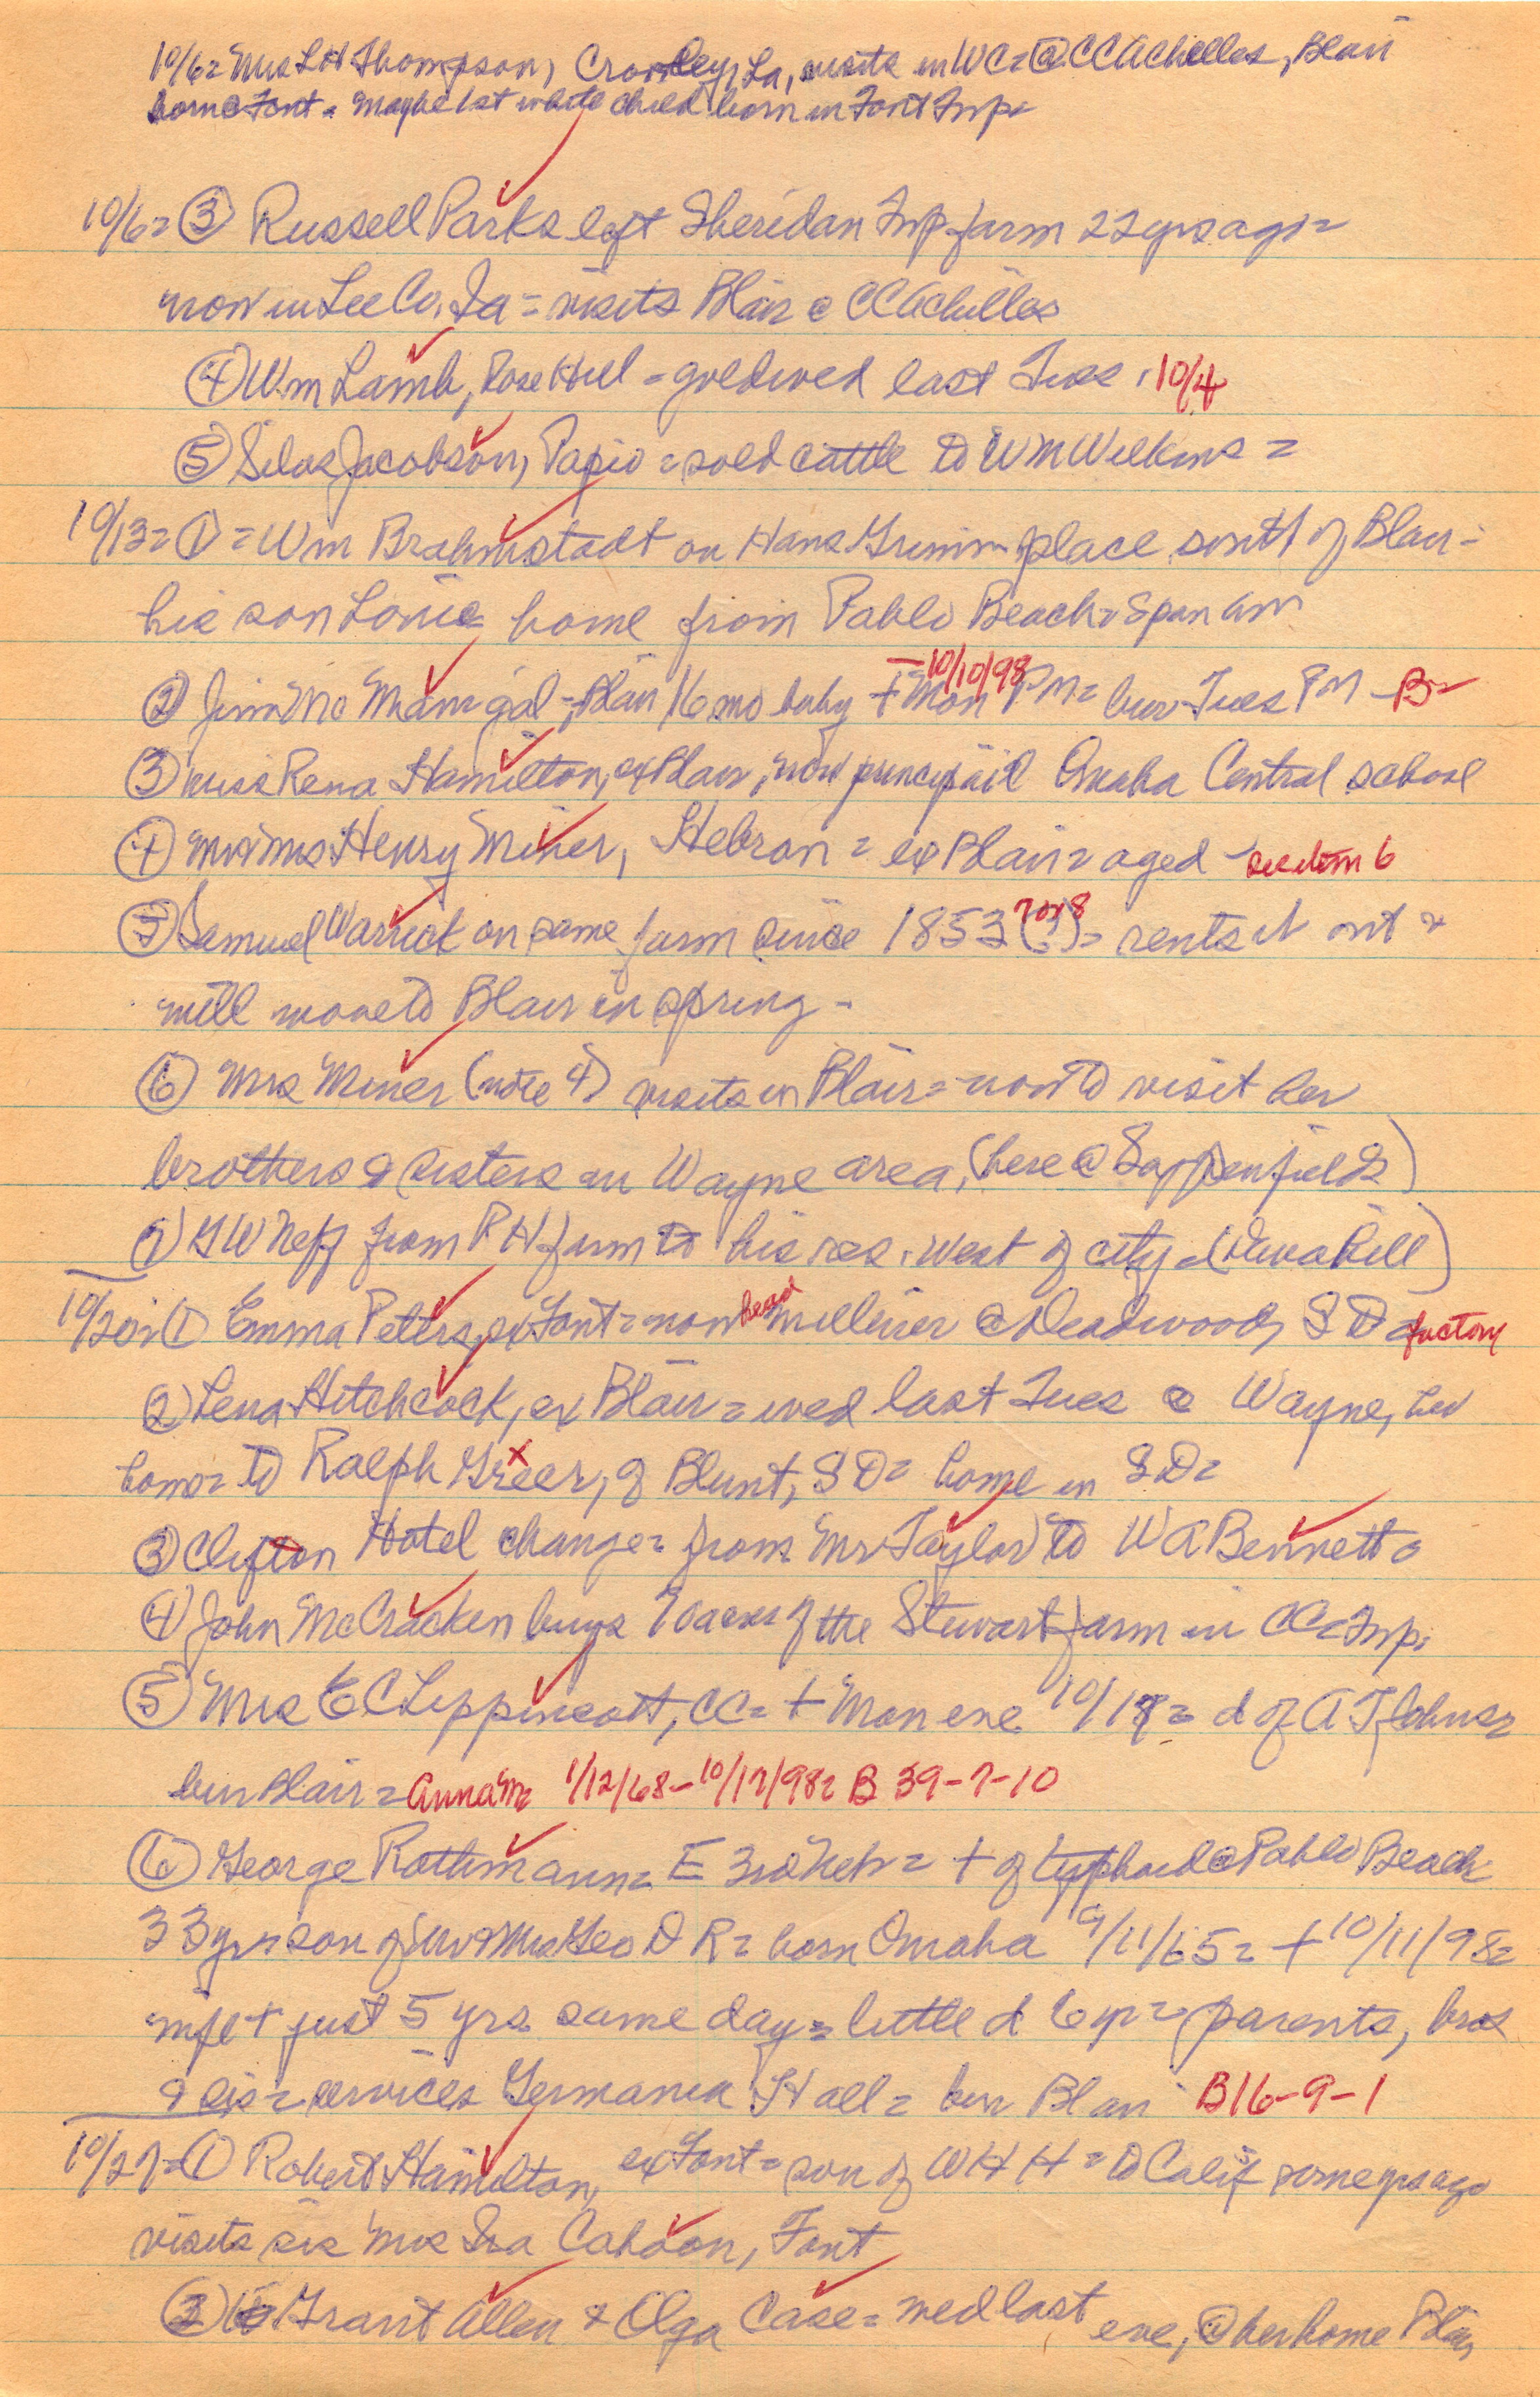 10/6= Mrs Lot Thompson, Crowley, La, visits in WC= @ CC Achilles, Blair
born @ Font = Maybe 1st white child born in Font Twp=
10/6= ③ Russell Parks left Sheridan Twp farm 22 yrs ago=
now in Lee Co. Ia = visits Blair @ CC Achilles
④ Wm Lamb, Rose Hill = gold wed last Tues. 10/4
⑤ Silas Jacobson, Papio = sold cattle to WM Wilkins =
10/13= ① = Wm Brahmstadt on Hans Grimm place south of Blair =
his son Louie home from Pablo Beach = Span Am
② Jim Mc Manigal =, Blair 16 mo baby + Mon —10/10/98 PM= bur Tues PM —B=
③ Miss Rena Hamilton, ex Blair, now principal Omaha Central school
④ Mr & Mrs Henry Miner, Hebron = ex Blair = aged - see item 6
⑤ Samuel Warrick on same farm since 1853 (?) 7 or 8 = rents it out &
will move to Blair in spring -
⑥ Mrs Miner (note 4) visits in Blair = now to visit her
brothers & sisters in Wayne area, (here @ Sappenfields)
⑦ GW Neff from RH farm to his res. West of city = (Dewa Hill)
10/20= ① Emma Peters, ex Font = now head milliner @ Deadwood, SD = factory
② Lena Hitchcock, ex Blair = wed last Tues @ Wayne, her
home= to Ralph Greer, of Blunt, SD= home in SD=
③ Clifton Hotel change= from Mr Taylor to WA Bennett =
④ John McCracken buys acres of the Stewart farm in CC= Twp.
⑤ Mrs E C Lippincott, CC= + Mon eve 10/17= d of A T Johns=
bur Blair = Anna M= 1/12/68-10/17/98= B 39-7-10
⑥ George Rothmann= E 3rd Neb= + of typhoid @ Pablo Beach
33 yrs= son of Mr & Mrs Geo D R= born Omaha 9/11/65= + 10/11/98=
wife + just 5 yrs same day = little d 6 yr = parents, bros
& sis = services Germania Hall = bur Blair B16-9-1
10/27= ① Robert Hamilton, ex Font = son of WHH = to Calif some yrs ago
visits sis Mrs Ira Cahoon, Font
② Grant Allen & Olga Case = wed last eve, @ her home Blair